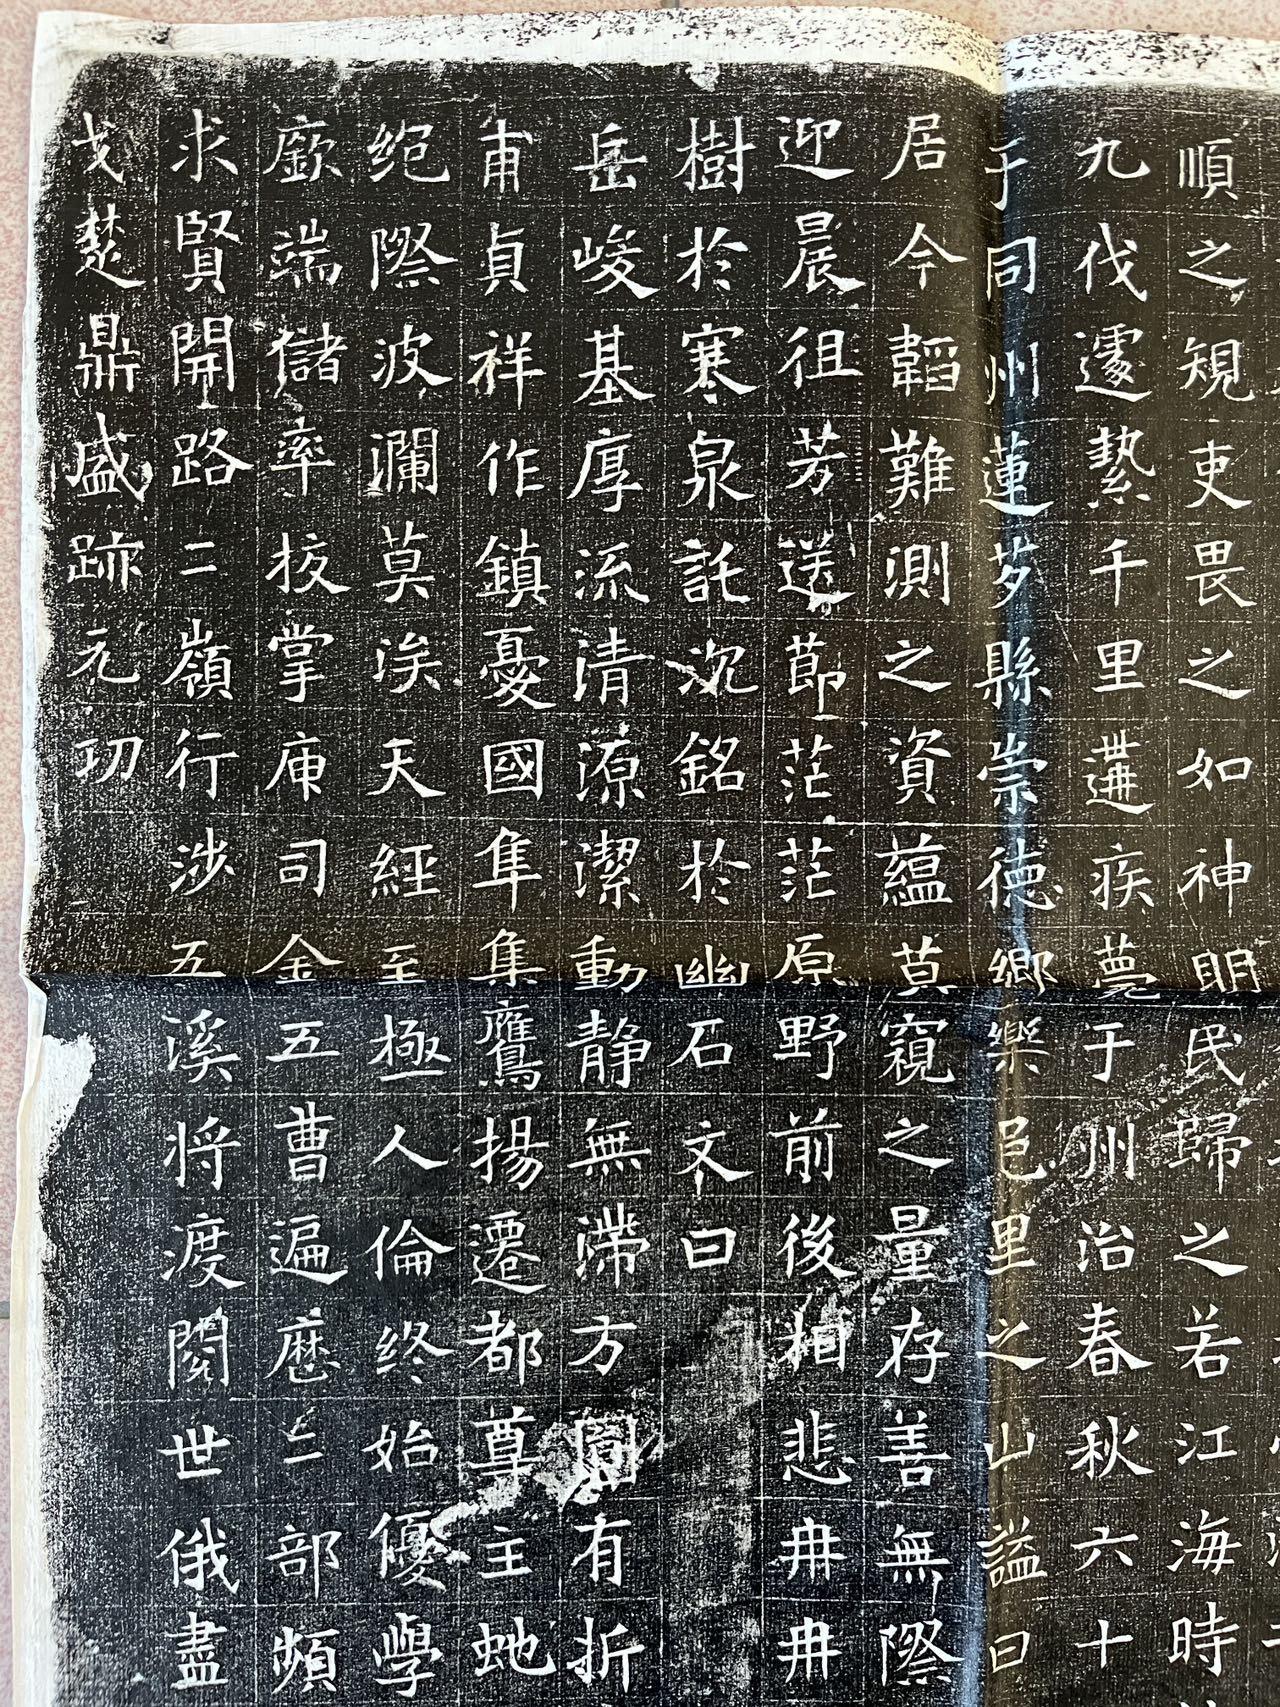 順之規吏畏之如神明民歸之若江海時
九伐遽縶千里遘疾薨于州治春秋六十
于同州蓮芍縣崇德鄉樂邑里之山謚曰
居今韜難測之資蘊莫窺之量存善無際
迎晨徂芳送節茫茫原野前後相悲冉冉
樹於寒泉託沉銘於幽石文曰
岳峻基厚流清源潔動静無滯方圓有折
甫貞祥作鎮憂國隼集鷹揚遷都尊主虵
絶際波瀾莫涘天經至極人倫終始優學
廞端儲率挍掌庫司金五曹遍歷三部頻
求賢開路二嶺行涉五溪将渡閱世俄盡
戈楚鼎盛跡元功